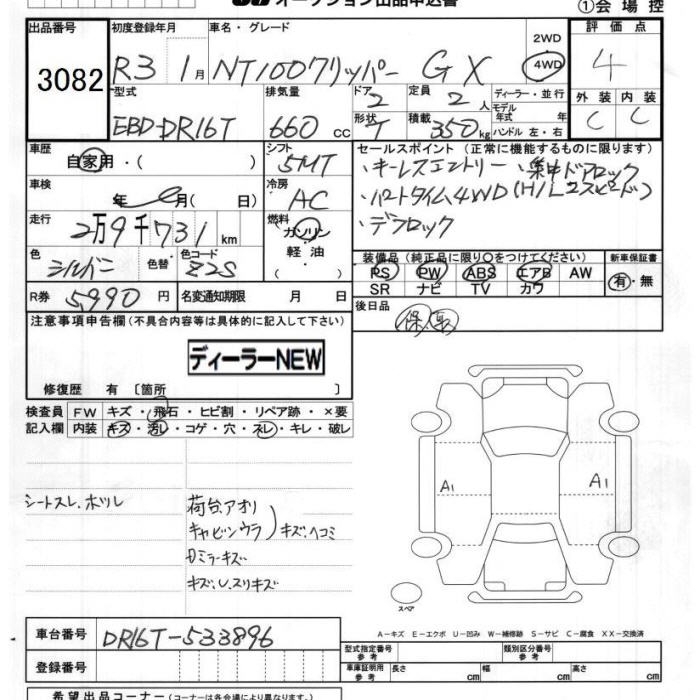 オークション出品申込書
①会場控
出品番号 初度登録年月 車名・グレード 2WD 評価点
3082 R3 1月 NT100クリッパー GX 4WD 4
型式 排気量 ドア 2 定員 2人 ディーラー・並行 外装 内装
モデル年式 年
EBD-DR16T 660cc 形状 T 積載 350kg ハンドル 左・右 C C
車歴 シフト セールスポイント (正常に機能するものに限ります)
自家用・( ) 5MT ・キーレスエントリー ・集中ドアロック
車検 冷房 ・パートタイム4WD(H/L 2スピード)
年 月( 日) AC ・デフロック
走行 燃料
2万9千731km ガソリン・軽油
色 色替 色コード 装備品 (純正品に限り○をつけてください) 新車保証書
シルバー Z2S PS PW ABS エアB AW 有・無
SR ナビ TV カワ
R券 5,990円 名変通知期限 月 日 後日品
保.取
注意事項申告欄(不具合内容等は具体的に記入して下さい)
ディーラーNEW
修復歴 有 〔箇所 〕
検査員 FW キズ・飛石・ヒビ割・リペア跡・×要
記入欄 内装 キズ・汚レ・コゲ・穴・スレ・キレ・破レ
A1 A1
シートスレ.ホツレ 荷台.アオリ
キャビンウラ キズ.ヘコミ
ロミラーキズ
キズ.U.スリキズ
スペア
A−キズ E−エクボ U−凹み W−補修跡 S−サビ C−腐食 XX−交換済
車台番号 DR16T-533896
型式指定番号 参考 類別区分番号 参考
登録番号 車庫証明用 参考 長さ cm 幅 cm 高さ cm
希望出品コーナー (コーナーは各会場により異なります。)